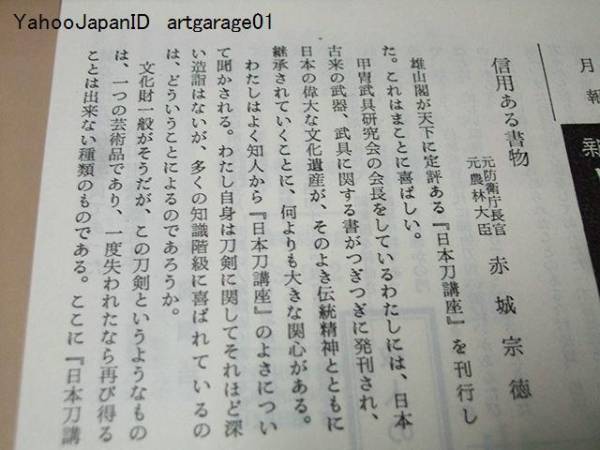 YahooJapanID artgarage01
月
報
新
信用ある書物
元防衛庁長官
元農林大臣
赤城宗徳
雄山閣が天下に定評ある『日本刀講座』を刊行し
た。これはまことに喜ばしい。
甲冑武具研究会の会長をしているわたしには、日本
古来の武器、武具に関する書がつぎつぎに発刊され、
日本の偉大な文化遺産が、そのよき伝統精神とともに
継承されていくことに、何よりも大きな関心がある。
わたしはよく知人から『日本刀講座』のよさについ
て聞かされる。わたし自身は刀剣に関してそれほど深
い造詣はないが、多くの知識階級に喜ばれているの
は、どういうことによるのであろうか。
文化財一般がそうだが、この刀剣というようなもの
は、一つの芸術品であり、一度失われたなら再び得る
ことは出来ない種類のものである。ここに『日本刀講